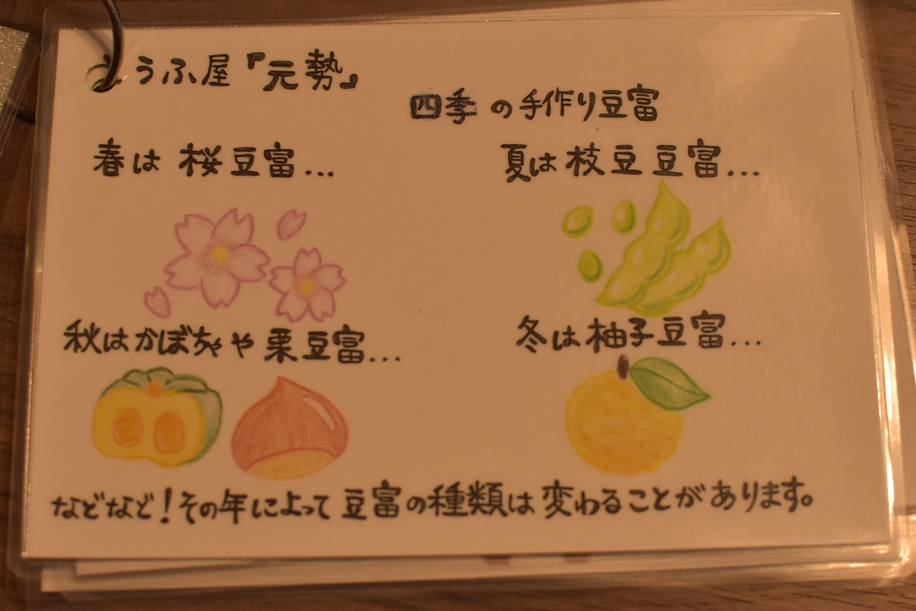 とうふ屋『元勢』
四季の手作り豆富
春は 桜豆富...
夏は枝豆豆富...
秋はかぼちゃや栗豆富...
冬は柚子豆富...
などなど！その年によって豆富の種類は変わることがあります。